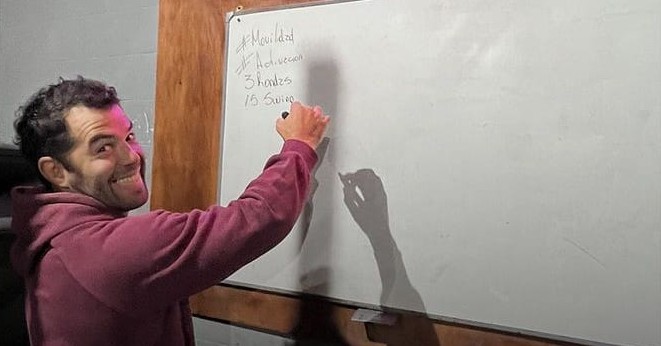 # Movilidad
# Activacion
3 Rondas
15 Swing